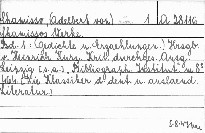 Chamisso (Adelbert von) 1 A 28116
Chamissos Werke.
Bd. 1: (Gedichte u. Erzaehlungen.) Hrsgb.
v. Heinrich Kurz. Krit. durchges. Ausg.
Leipzig (s.a.), Bibliograph. Institut. m. 8°
(Die Klassiker d. deut. u. auslaend.
Literatur.)